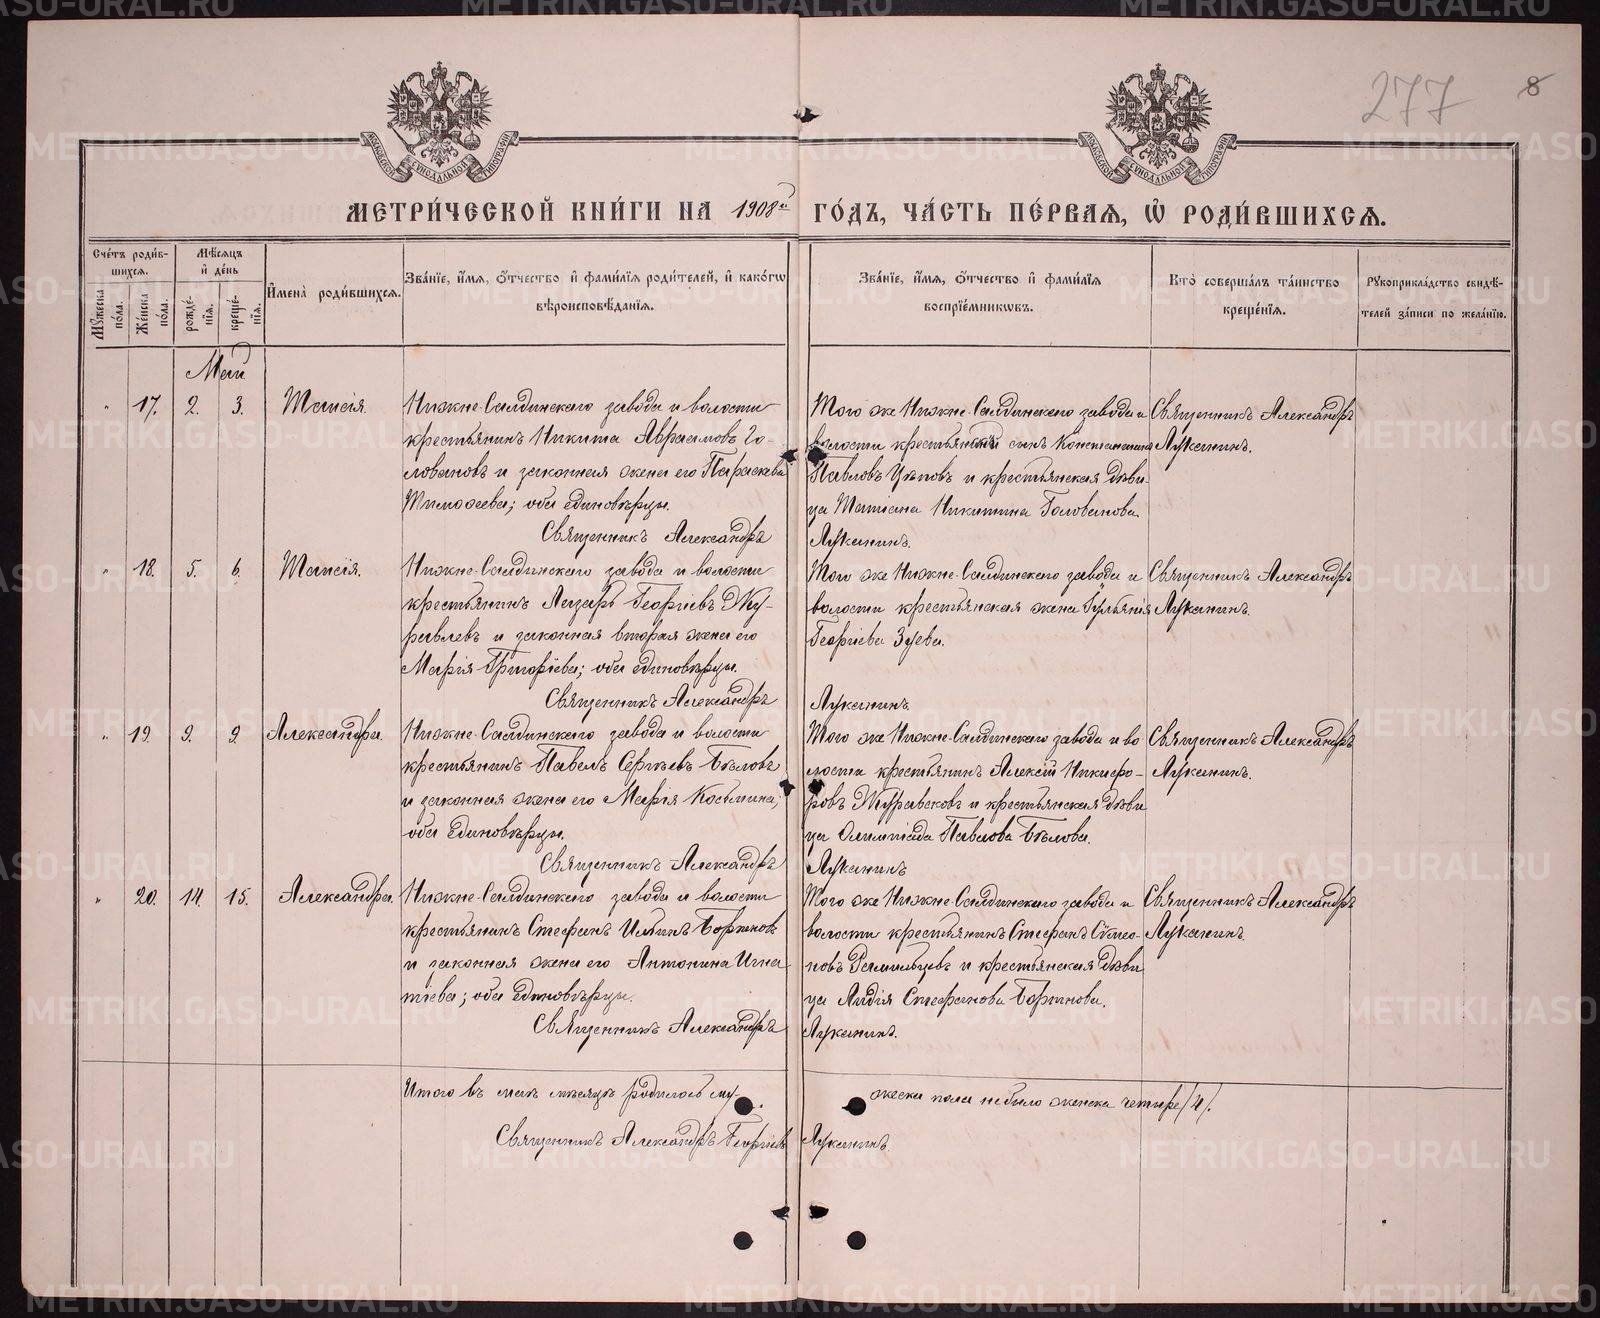 277
8
МЕТРИ́ЧЕСКОЙ КНИ́ГИ НА 1908й ГО́ДЪ, ЧА́СТЬ ПЕ́РВАЯ, Ѡ҆ РОДИ́ВШИХСЯ.
Сче́тъ роди́в-
шихся.
Мꙋ́жеска по́ла.
Же́нска по́ла.
Мѣ́сяцъ
и҆ де́нь
рожде́-
нїя.
креще́-
нїя.
И҆мена̀ роди́вшихся.
Зва́нїе, и҆́мя, о҆́тчество и҆ фами́лїя роди́телей, и҆ како́гѡ
вѣроисповѣ́данїя.
Зва́нїе, и҆́мя, о҆́тчество и҆ фами́лїя
воспрїе́мникѡвъ.
Кто̀ соверша́лъ та́инство
креще́нїя.
Рꙋкоприкла́дство свидѣ́-
телей за́писи по жела́нїю.
Май
„ 17. 2. 3. Таисія.
Нижне-Салдинскаго завода и волости
крестьянинъ Никита Авраамовъ Го-
ловановъ и законная жена его Параскева
Тимоѳеева; оба единовѣрцы.
Священникъ Александръ
Того же Нижне-Салдинскаго завода и
волости крестьянскій сынъ Константинъ
Павловъ Цѣповъ и крестьянская дѣви-
ца Татіана Никитина Голованова.
Луканинъ.
Священникъ Александръ
Луканинъ.
„ 18. 5. 6. Таисія.
Нижне-Салдинскаго завода и волости
крестьянинъ Лазарь Георгіевъ Жу-
равлевъ и законная вторая жена его
Марія Григоріева; оба единовѣрцы.
Священникъ Александръ
Того же Нижне-Салдинскаго завода и
волости крестьянская жена Іульянія
Георгіева Зуева.
Луканинъ.
Священникъ Александръ
Луканинъ.
„ 19. 9. 9. Александра.
Нижне-Салдинскаго завода и волости
крестьянинъ Павелъ Сергѣевъ Бѣловъ
и законная жена его Марія Косьмина;
оба единовѣрцы.
Священникъ Александръ
Того же Нижне-Салдинскаго завода и во
лости крестьянинъ Алексій Никифо-
ровъ и крестьянская дѣви
ца Олимпіада Павлова Бѣлова.
Луканинъ
Священникъ Александръ
Луканинъ.
„ 20. 14. 15. Александра.
Нижне-Салдинскаго завода и волости
крестьянинъ Стефанъ Ильинъ Бортновъ
и законная жена его Антонина Игна-
тіева; оба единовѣрцы.
Священникъ Александръ
Того же Нижне-Салдинскаго завода и
волости крестьянинъ Стефанъ Сѵмео-
новъ и крестьянская дѣви
ца Лидія Стефанова Бортнова.
Луканинъ.
Священникъ Александръ
Луканинъ.
Итого въ маѣ мѣсяцѣ родилось му-
жеска пола небыло женска четыре /4/.
Священникъ Александръ Георгіевъ Луканинъ.